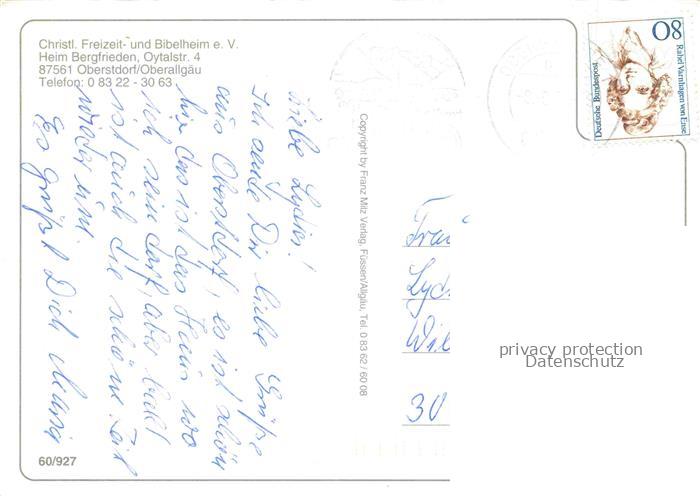 Christl. Freizeit- und Bibelheim e. V.
Heim Bergfrieden, Oytalstr. 4
87561 Oberstdorf/Oberallgäu
Telefon: 0 83 22 - 30 63
Liebe Lydia!
Ich sende Dir liebe Grüße
aus Oberstdorf, es ist schön
hier das ist das Haus wo
ich sein darf, aber bald
ist auch die schöne Zeit
wieder um
Es grüßt Dich Maria
60/927
Copyright by Franz Milz Verlag, Füssen/Allgäu, Tel. 0 83 62 / 60 08
80
Rahel Varnhagen von Ense
Deutsche Bundespost
Frau
Lyd
Wil
30
privacy protection
Datenschutz